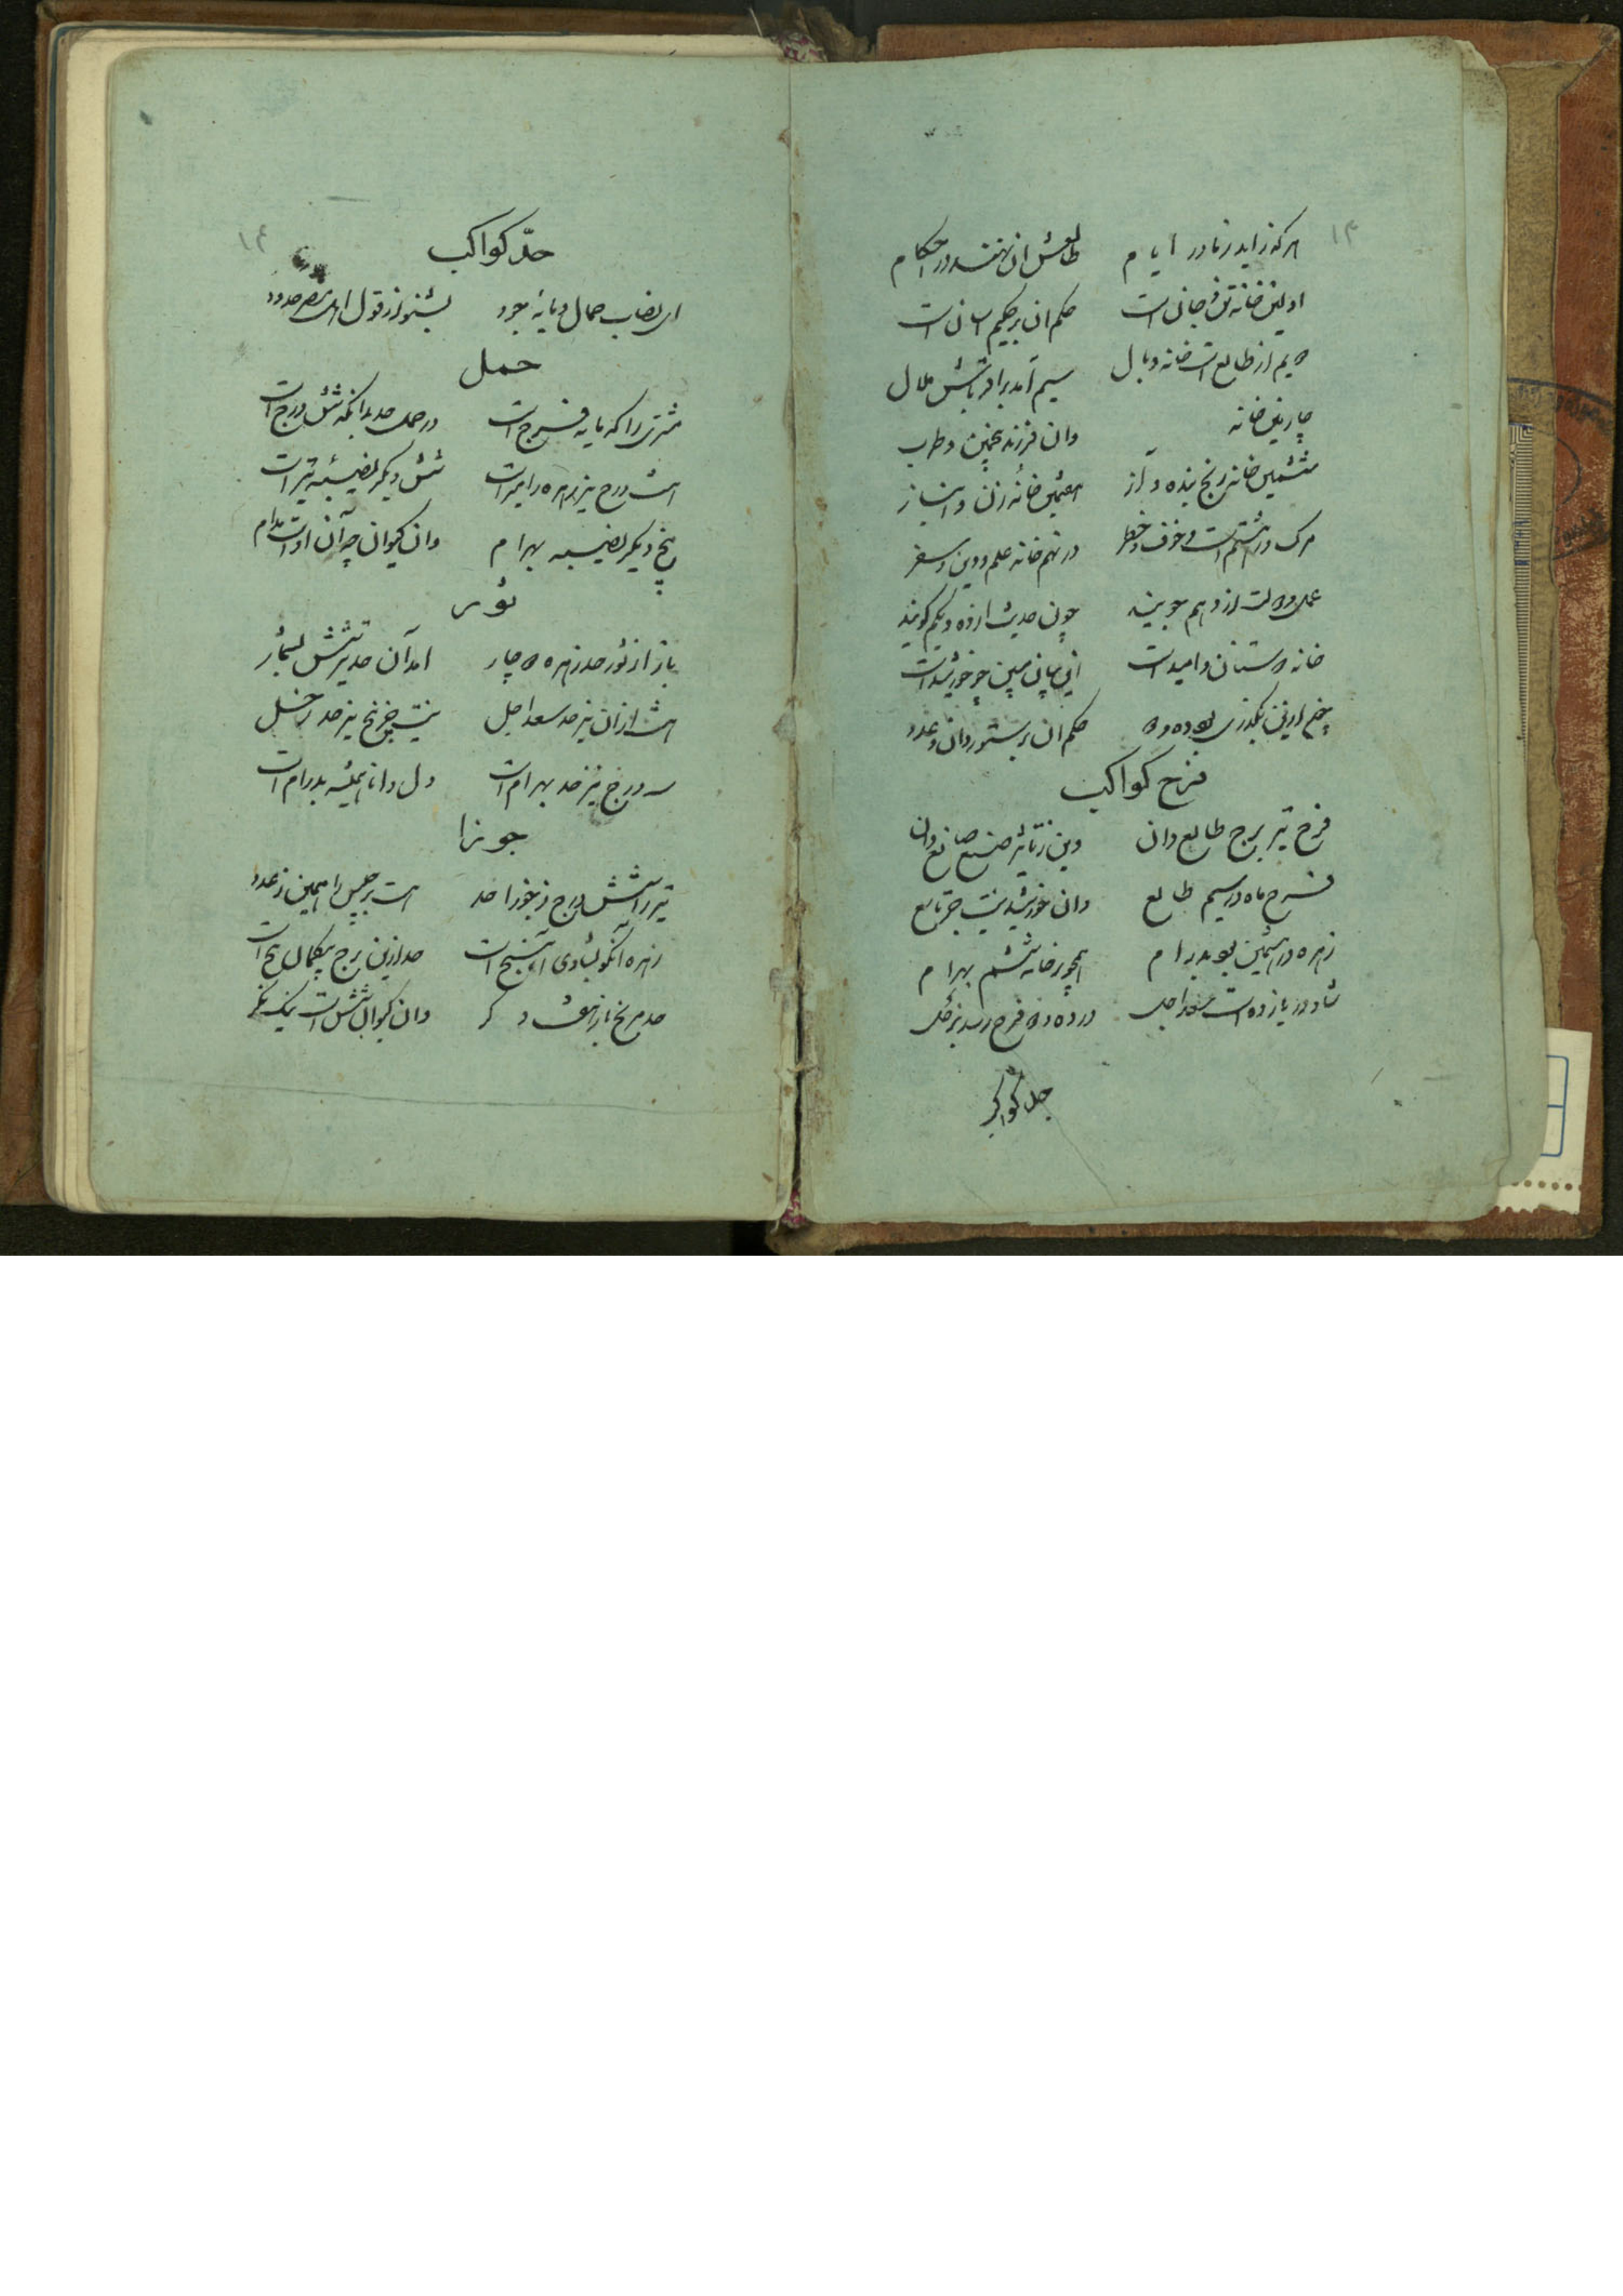 ۱۳
هرکه زاید ز مادر ایام طالعش از نهند در احکام
اولین خانه تن و جان است حکم آن بر حکیم آسان است
دویم از طالع است خانه و مال سیم آمد برادر
چارمین خانه وان فرزند پنجمین و طرب
ششمین خانه رنج بنده و آز هفتمین خانه زن و انباز
مرک در هشتم است و خوف و خطر در نهم خانه علم و دین و سفر
عمل و دولت از دهم جویند چون حدیث از ده و یکم گویند
خانه دوستان و امید است این میان مبین چو خورشید است
چونکه ازین بگذری بود ده و دو حکم آن بر ستور دان و عدو
فرح کواکب
فرح تیر برج طالع دان وین ز تاثیر صنع صانع دان
فرح ماه در سیم طالع وان خورشید نیست جز تاسع
زهره در پنجمین بود پدرام همچو در خانه ششم بهرام
شاد در یازده است سعد اجل در ده و دو فرح رسد بزحل
حد کواکب
۱۴
حدّ کواکب
ای نصاب جمال و مایه جود بشنو از قول اهل مصر حدود
حمل
مشتری را که مایه فرح است در حمل حد بدانکه شش درج است
هشت درج نیز زهره را شش دیگر نصیبه تیر است
پنج دیگر نصیبه بهرام وان کیوان چو آن اوست مدام
ثور
باز از ثور حد زهره دو چار آمد آن حد تیر شش بشمار
هشت از آن نیز حد سعد اجل نیست جز پنج نیز حد زحل
سه درج نیز حد بهرام است دل دانا همیشه پدرام است
جوزا
تیر راشش درج ز جوزا حد هست برجیس را همین ز عدد
زهره آنکو بشادی پنج است حد ازین برج بیکمال پنج است
حد مریخ باز هفت دکر وان کیوان شش است نیک نکر